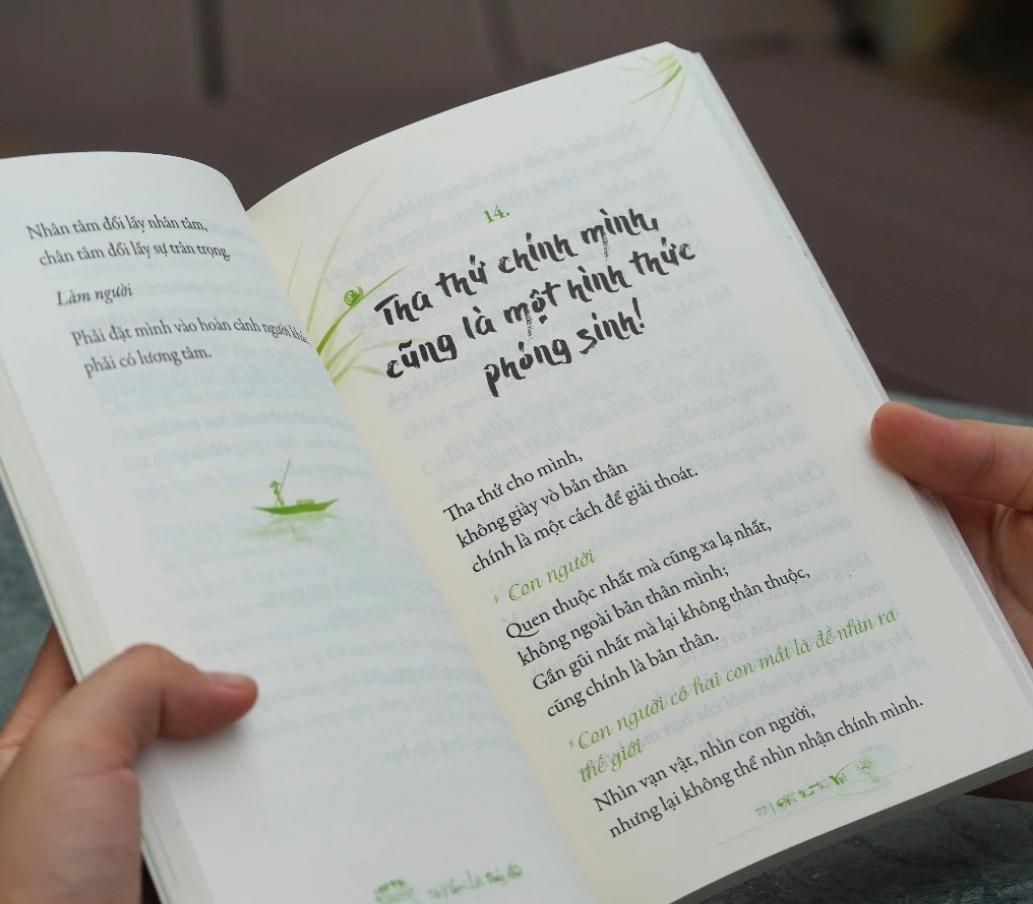 Nhân tâm đổi lấy nhân tâm,
chân tâm đổi lấy sự trân trọng.
Làm người
Phải đặt mình vào hoàn cảnh người khác,
phải có lương tâm.
14.
Tha thứ chính mình,
cũng là một hình thức
phóng sinh!
Tha thứ cho mình,
không giày vò bản thân
chính là một cách để giải thoát.
* Con người
Quen thuộc nhất mà cũng xa lạ nhất,
không ngoài bản thân mình;
Gần gũi nhất mà lại không thân thuộc,
cũng chính là bản thân.
* Con người có hai con mắt là để nhìn ra
thế giới
Nhìn vạn vật, nhìn con người,
nhưng lại không thể nhìn nhận chính mình.